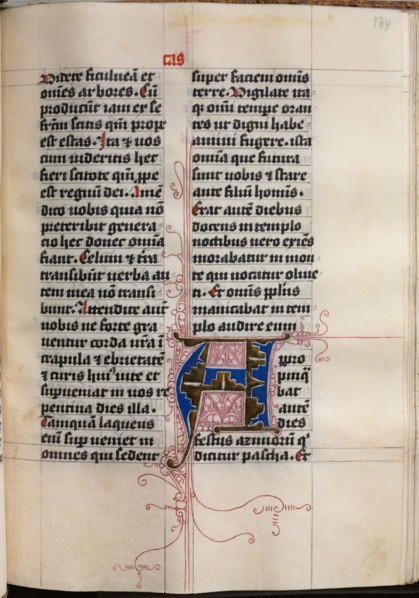 134
cas
Videte ficulneā et
om̄es arbores. Cū
producūt iam ex se
frc̄m scitis qm̄ prope
est estas. Ita ⁊ vos
cum videritis hec
fieri scitote qm̄ ꝓpe
est regnū dei. Amē
dico vobis quia nō
preteribit genera
cio hec donec om̄ia
fiant. Celum ⁊ t̄ra
transibūt verba aū
tem mea nō transi
bunt. Attendite aūt
vobis ne forte gra
uentur corda vr̄a ī
crapula ⁊ ebrietate
⁊ curis huiꝰ vite et
supueniat in vos re
pentina dies illa.
Tamquā laqueus
enī supueniet in
omnes qui sedent
super faciem om̄is
terre. Vigilate ita
qꝫ om̄i tempe oran
tes ut digni habe
amini fugere. ista
om̄ia que futura
sunt vobis ⁊ stare
ante filiū hom̄is.
Erat autē diebus
docens in templo
noctibus vero exiēs
morabatur in mon
te qui vocatur oliue
ti. Et om̄is pplus
manicabat in tem
plo audire eum
A ppro
pinq̄
bat
autē
dies
festus azimorū q̇
dicitur pascha. Et